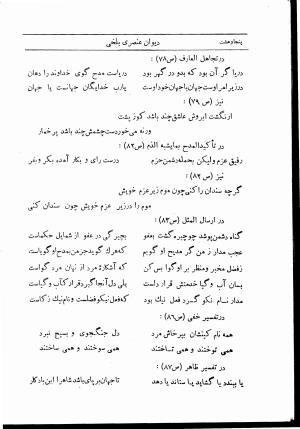 پنجاه و هشت دیوان عنصری بلخی
در تجاهل العارف (ص۷۸):
دریا گر آن بود که بدو در گهر بود دریاست مدح گوی خداوند را دهان
یارب خدایگان جهانست یا جهان
نیز (ص ۷۹):
ار نگشت ابروش عاشق چند باشد کوژ پشت
ورنه می خوردست چشمش چند باشد پر خمار
در تأکید المدح بما یشبه الذم (ص۸۲):
رفیق عزم ولیکن بحمله دشمن حزم درست رای و بکار آمده بکر و بفر
نیز (ص ۸۲):
گرچه سندان را کنی چون موم زیر عزم خویش
موم را در زیر عزم خویش چون سندان کنی
در ارسال المثل (ص۸۳):
گناه دشمن پوشد چو چیره گشت بعفو بچیرگی در عفو از شمایل حکماست
عجب مدار ز من گر مدیح او گویم که هرك گوید جز من بمدح او گویاست
ز فضل مخبر و منظر بر او گوا بس کن که آشکارهٔ مرد از نهان مرد گواست
بسان آب و گیا خدمتش قرار دلست بلی دل آنجا گیرد قرار کآب و گیاست
مدار نام نکو گسرد فعل نیك بود که فعل نیکو فضلست و نام نیك
در تفسیر خفی (ص۸۶):
همه نام کینشان بپرخاش مرد دل جنگجوی و بسیج نبرد
همی توختند و همی تاختند همی سوختند و همی ساختند
در تفسیر ظاهر (ص۸۷):
یا ببندد یا گشاید یا ستاند یا دهد تا جهان بر پای باشد شاه را این یادگار